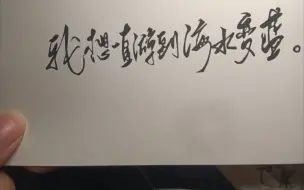 我想一直游到海水变蓝。